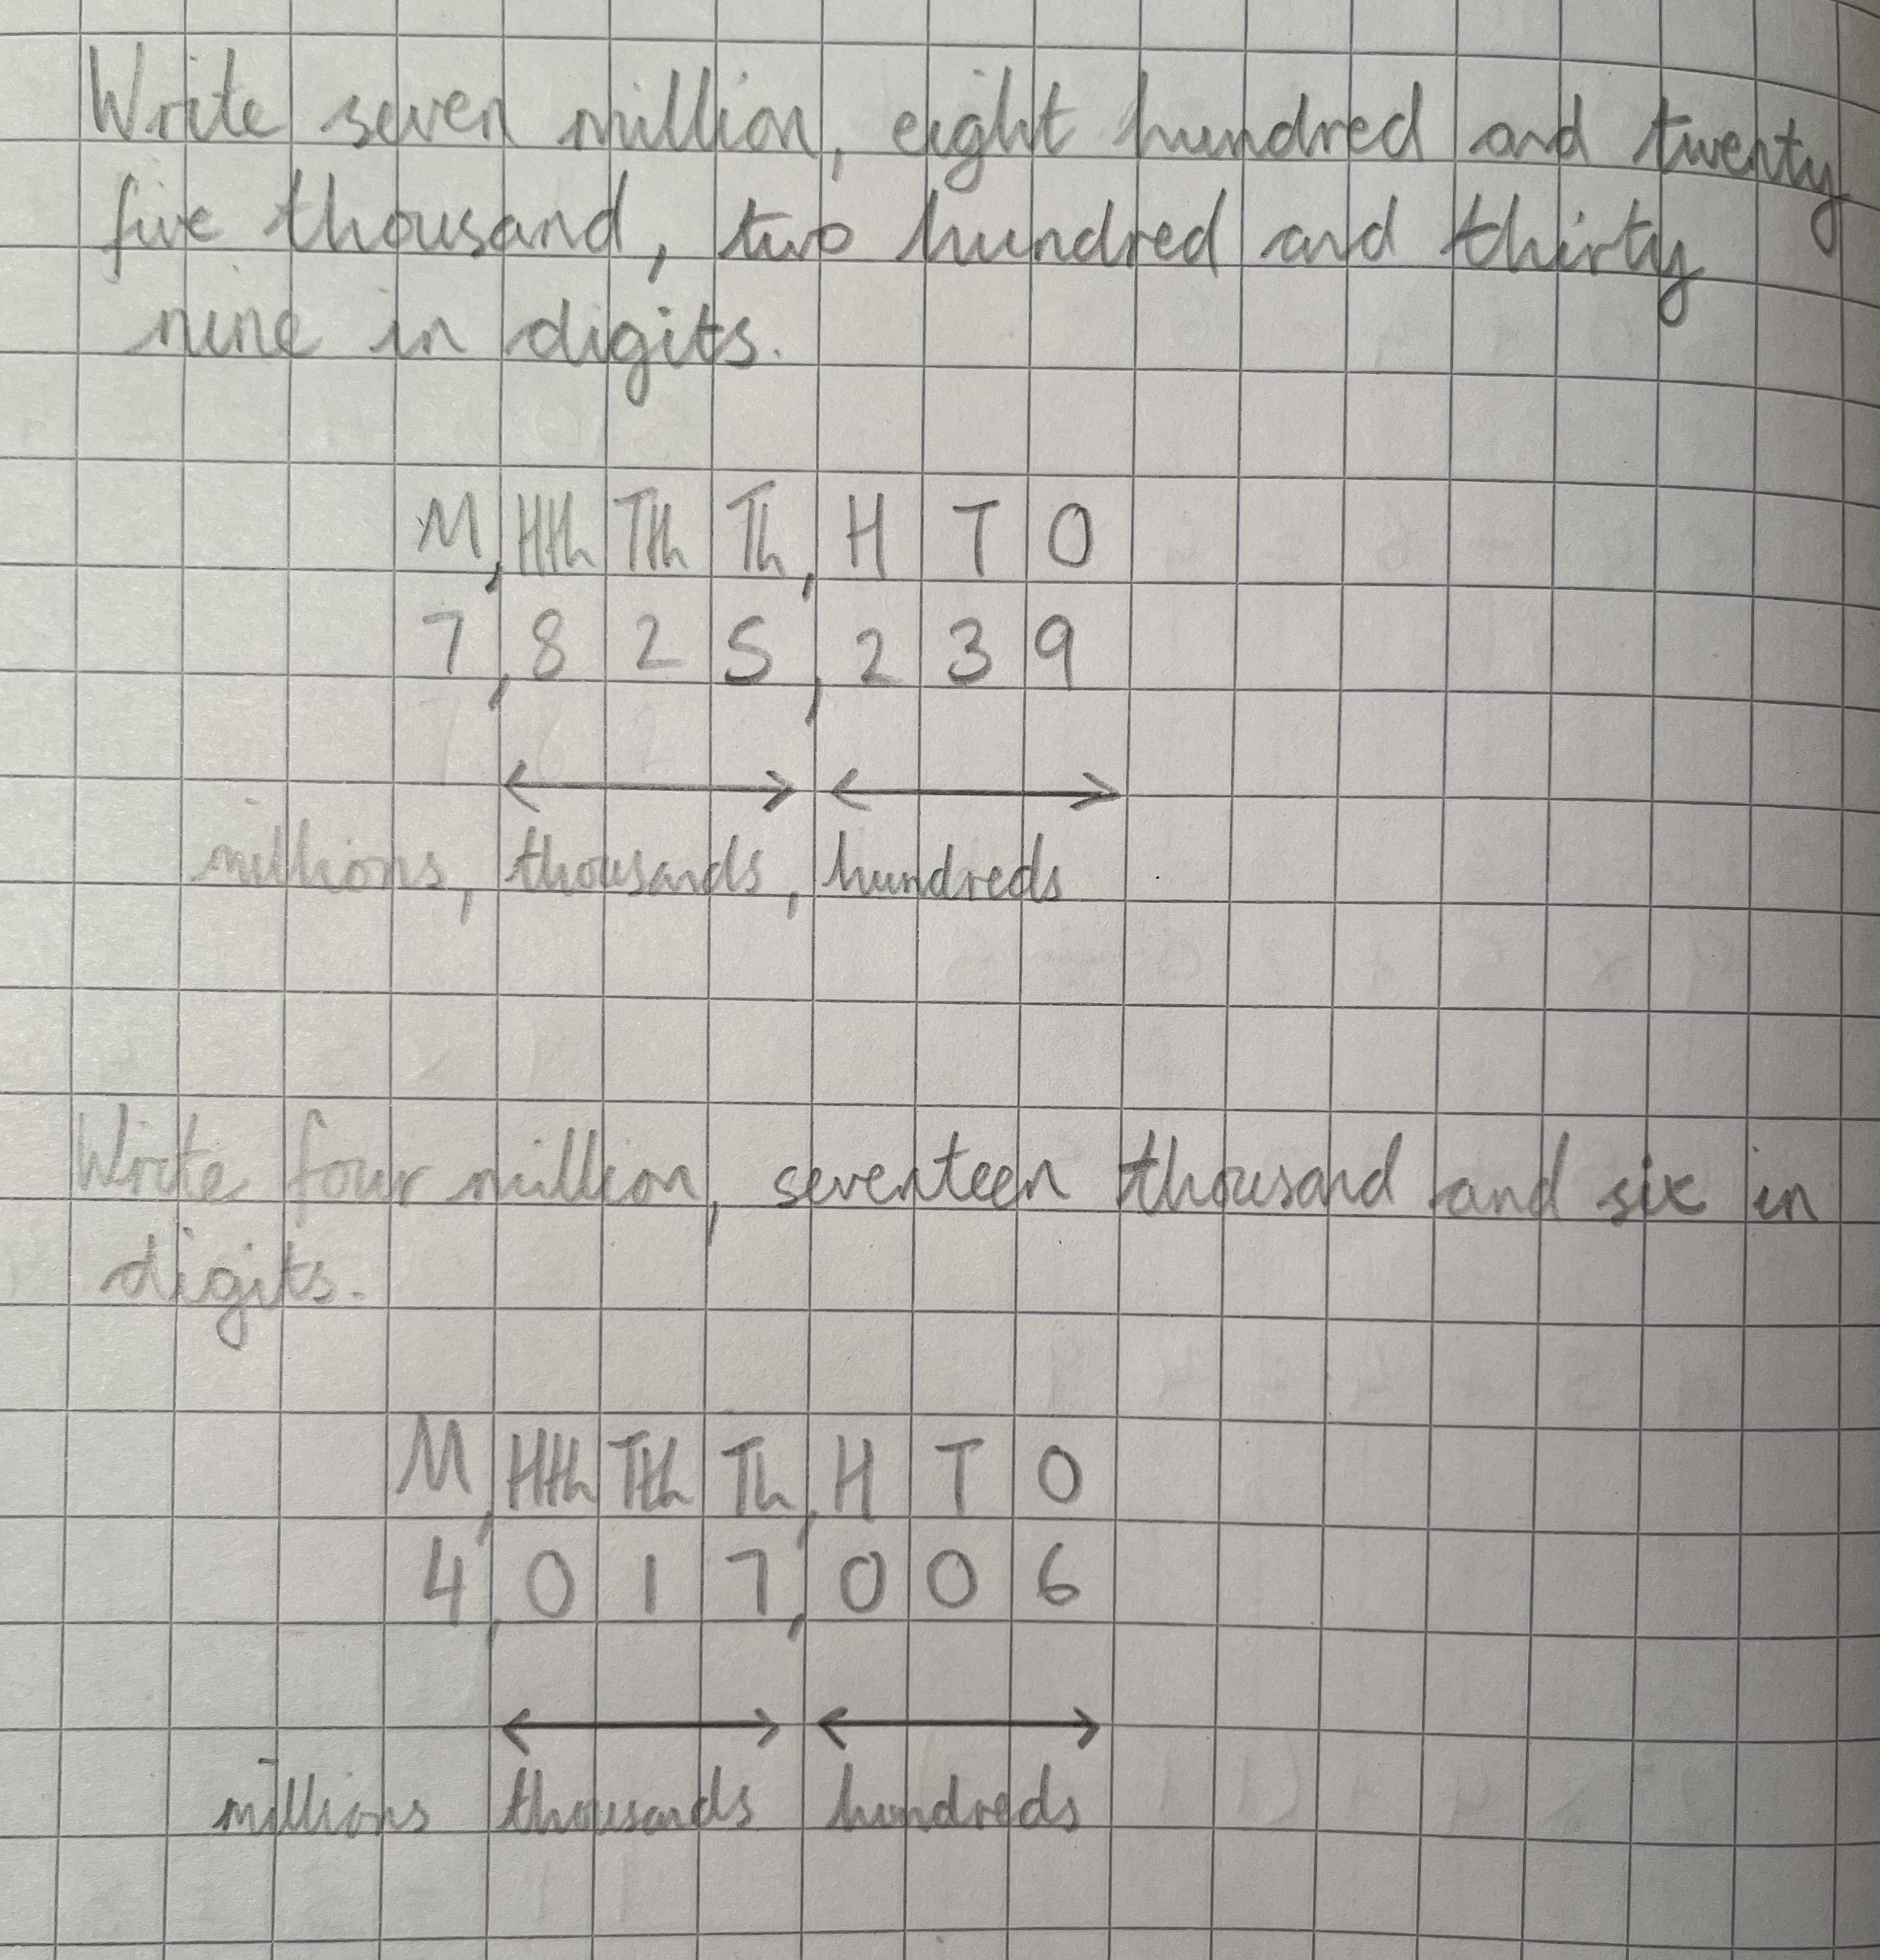 Write seven million, eight hundred and twenty
five thousand, two hundred and thirty
nine in digits.
M, HTh TTh Th, H T O
7, 8 2 5, 2 3 9
millions, thousands, hundreds
Write four million, seventeen thousand and six in
digits.
M, HTh TTh Th, H T O
4, 0 1 7, 0 0 6
millions thousands hundreds